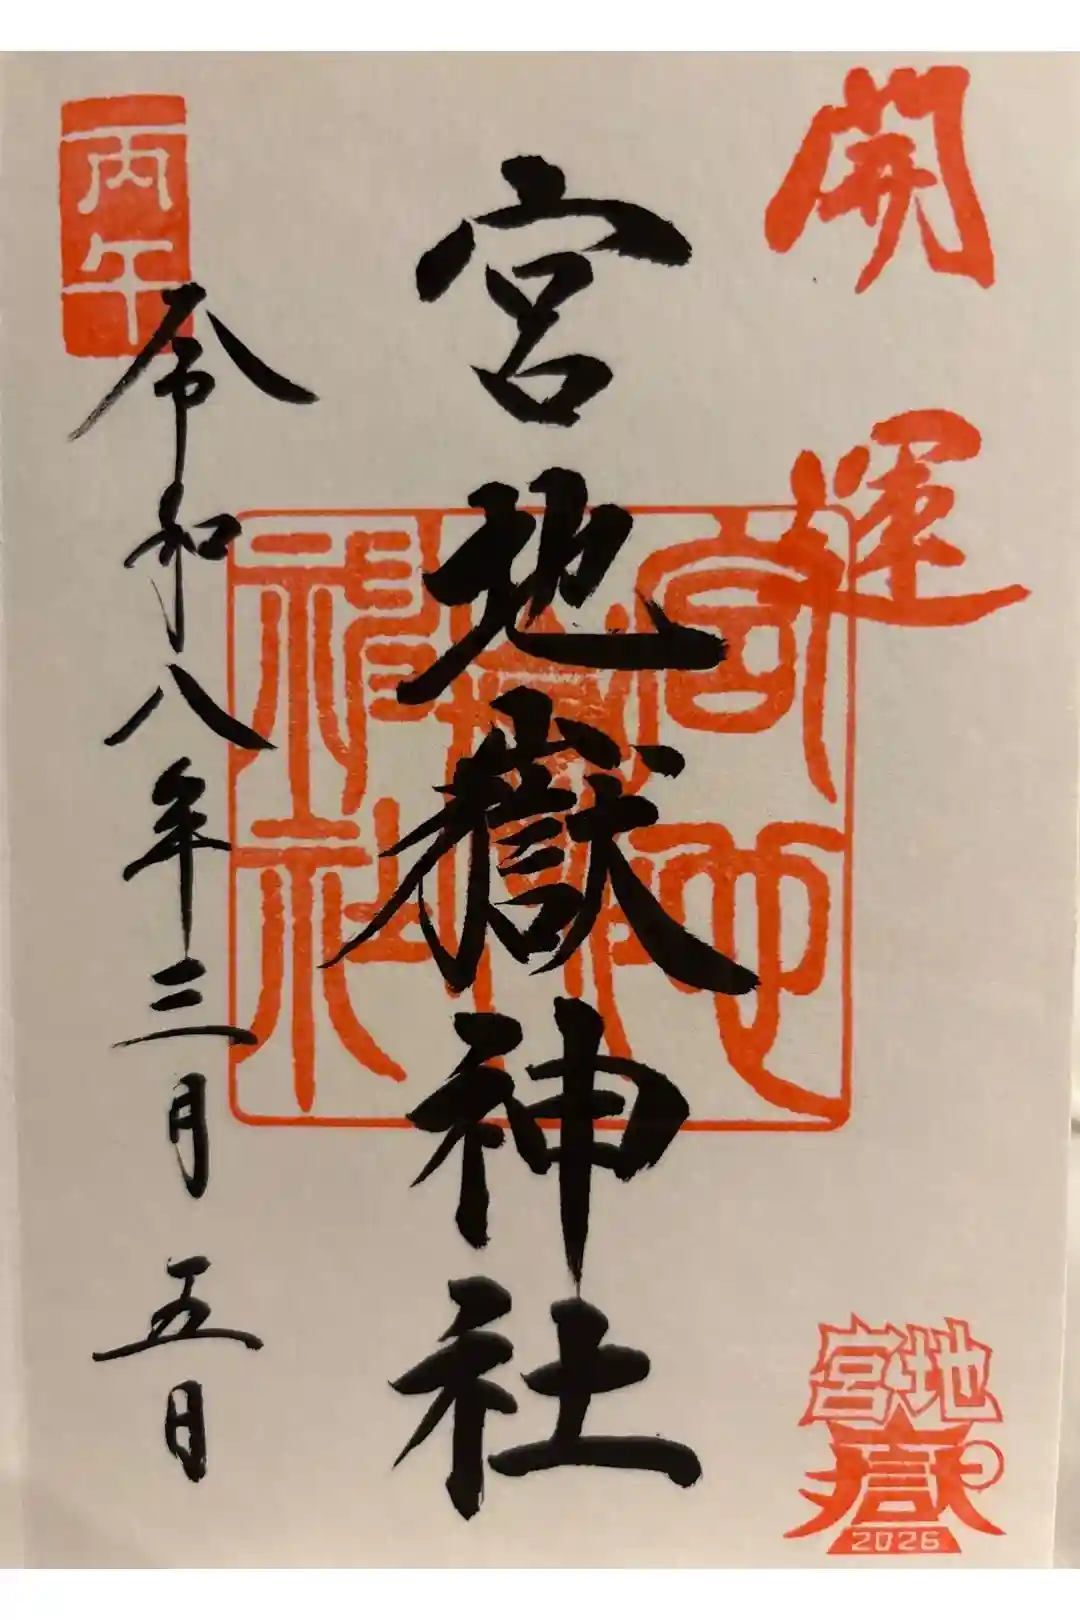 開運
宮地嶽神社
宮地嶽神社
丙午
令和八年三月五日
宮地
嶽
2026